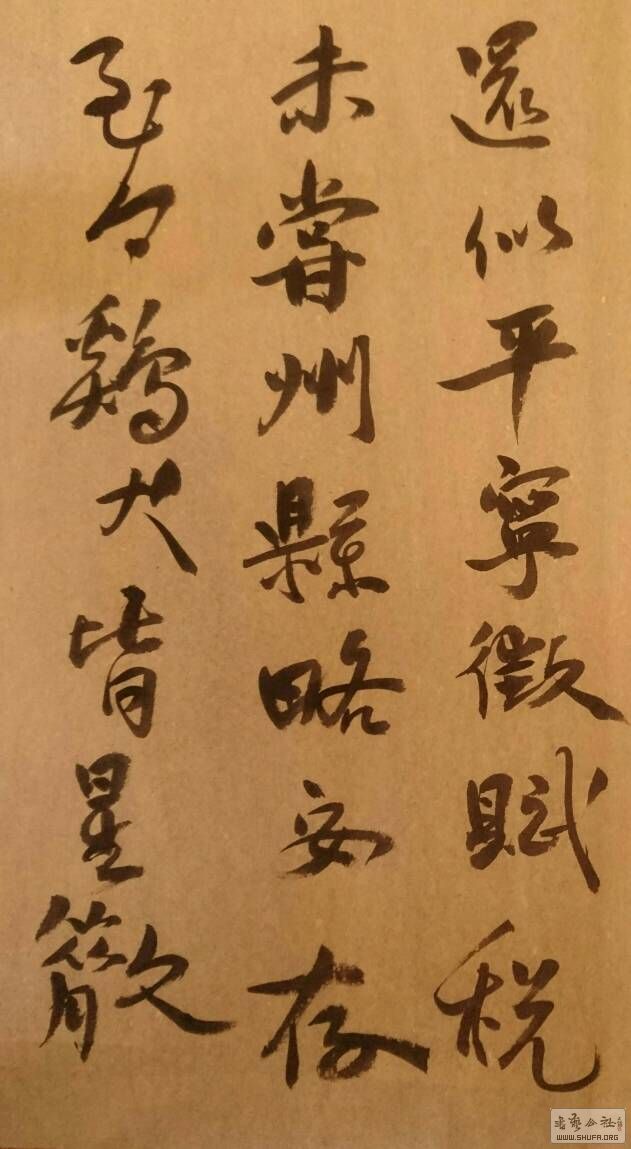 還似平寧徵賦稅
未嘗州縣略安存
至今鷄犬皆星散
WWW.SHUFA.ORG